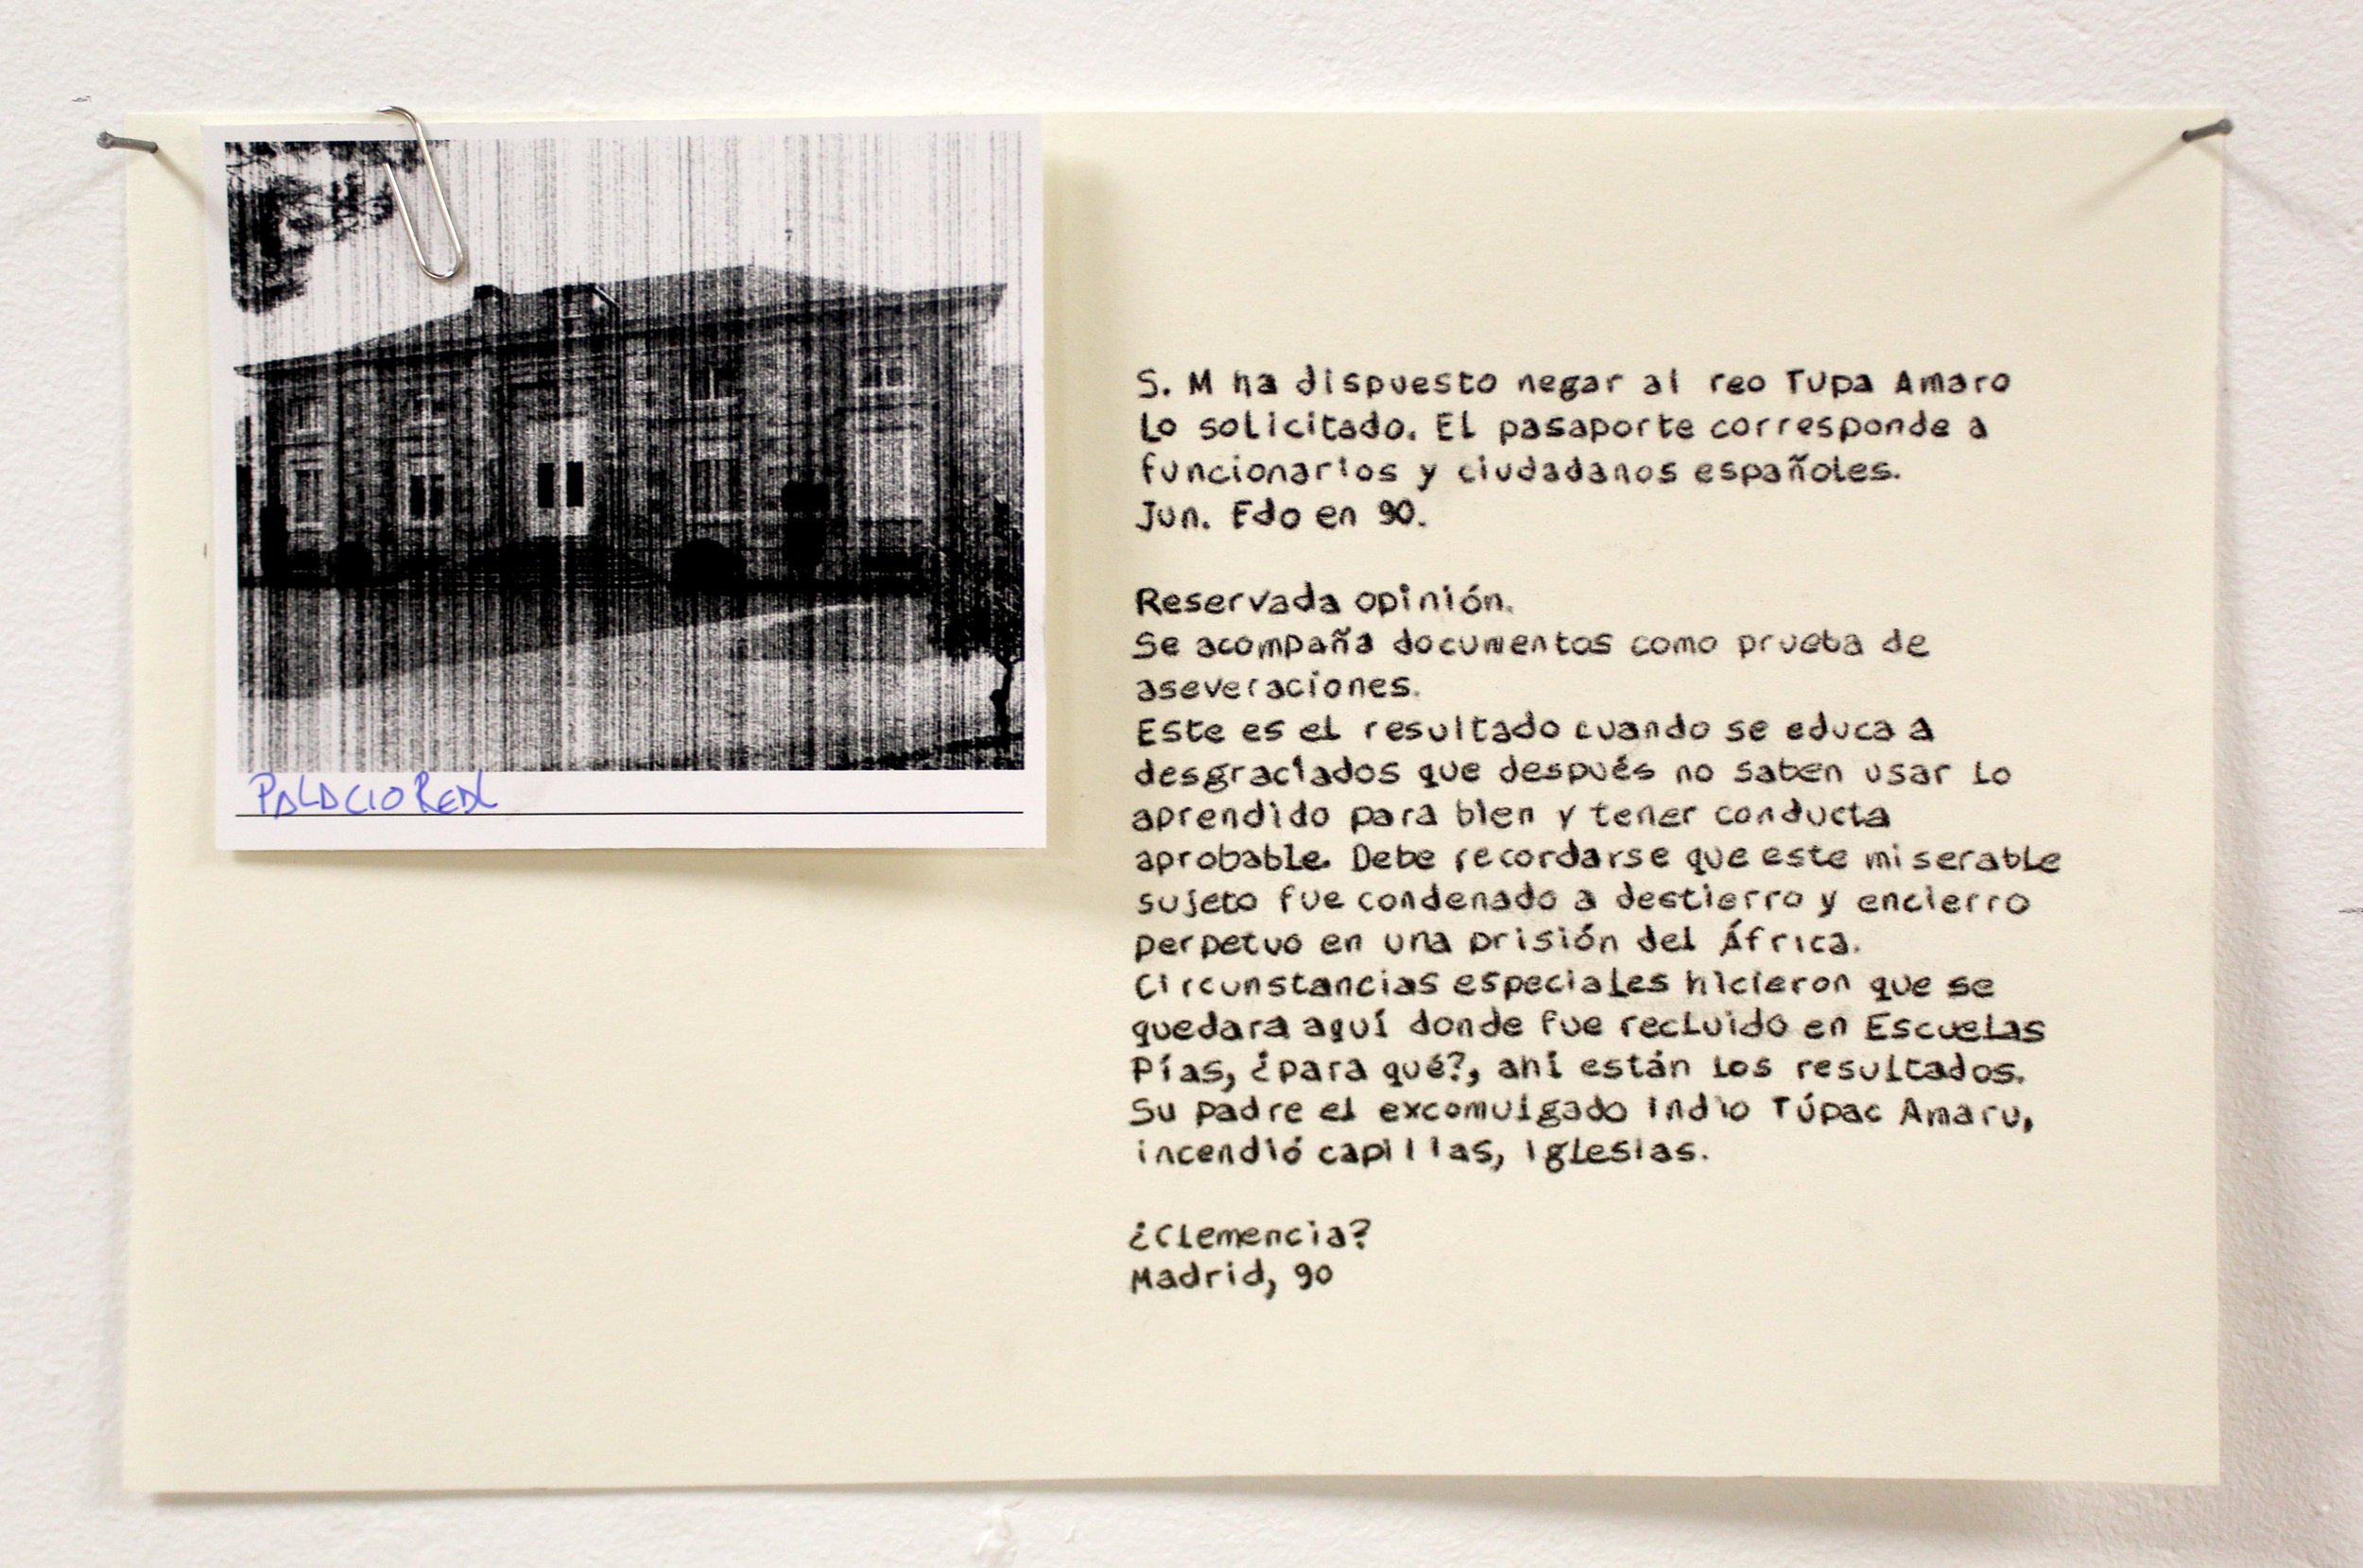 PALACIO REAL
S. M ha dispuesto negar al reo Tupa Amaro
Lo solicitado. El pasaporte corresponde a
funcionarios y ciudadanos españoles.
Jun. Fdo en 90.
Reservada opinión.
Se acompaña documentos como prueba de
aseveraciones.
Este es el resultado cuando se educa a
desgraciados que después no saben usar lo
aprendido para bien y tener conducta
aprobable. Debe recordarse que este miserable
sujeto fue condenado a destierro y encierro
perpetuo en una prisión del África.
Circunstancias especiales hicieron que se
quedara aquí donde fue recluido en Escuelas
Pías, ¿para qué?, ahí están los resultados.
Su padre el excomulgado indio Túpac Amaru,
incendió capillas, iglesias.
¿Clemencia?
Madrid, 90